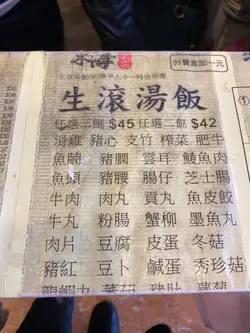 外賣盒加一元
生滾湯飯
任選三餸 $45 任選二餸 $42
滑雞 豬心 支竹 榨菜 肥牛
魚腩 豬膶 雲耳 鯪魚肉
魚頭 豬腰 腸仔 芝士腸
牛肉 肉丸 貢丸 魚皮餃
牛丸 粉腸 蟹柳 墨魚丸
肉片 豆腐 皮蛋 冬菇
豬紅 豆卜 鹹蛋 秀珍菇